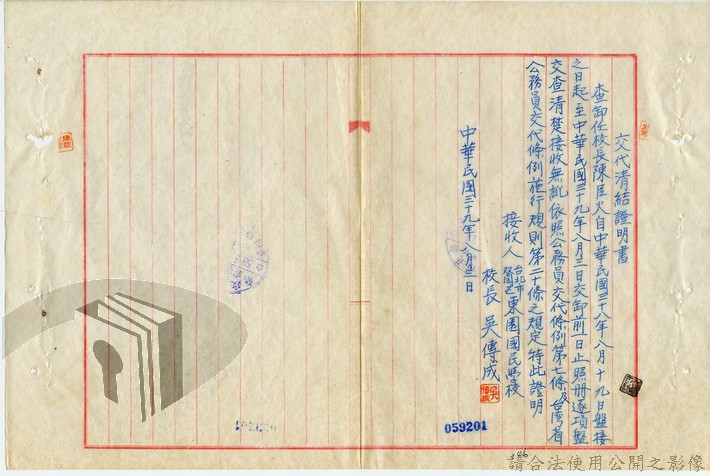 交代清結證明書
查卸任校長陳臣火自中華民國三十八年八月十九日盤接
之日起至中華民國三十九年八月三日交卸前一日止照册逐項盤
交查清楚接收無訛依照公務員交代條例第七條及台灣省
公務員交代條例施行規則第二十條之規定特此證明
接收人台北市雙園區東園國民學校
校長 吳傳成
中華民國三十九年八月三日
059201
請合法使用公開之影像